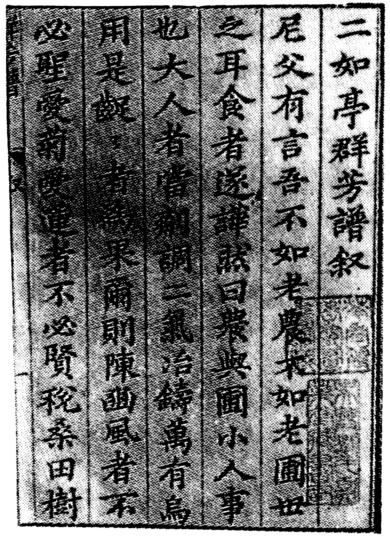 二如亭群芳譜叙
尼父有言吾不如老農不如老圃世
之耳食者遂譁然曰農與圃小人事
也大人者當劑調二氣冶鑄萬有烏
用是齪〻者爲果爾則陳豳風者不
必聖愛菊愛蓮者不必賢稅桑田樹